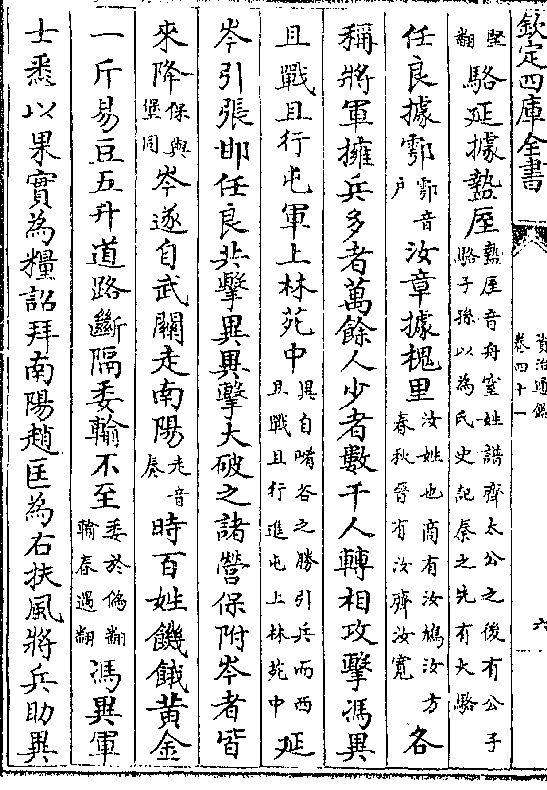 欽定四庫全書
資治通鑑
卷四十一
六
竪翻駱延據盩厔盩厔音舟窒姓譜齊太公之後有公子駱子孫以為氏史記秦之先有大駱
任良據鄠鄠音户汝章據槐里汝姓也商有汝鳩汝方春秋晉有汝齊汝寬各
稱將軍擁兵多者萬餘人少者數千人轉相攻擊馮異
且戰且行屯軍上林苑中異自崤谷之勝引兵而西且戰且行進屯上林苑中延
岑引張邯任良共擊異異擊大破之諸營保附岑者皆
來降保與堡同岑遂自武關走南陽走音奏時百姓饑餓黄金
一斤易豆五升道路斷隔委輸不至委於偽翻輸春遇翻馮異軍
士悉以果實為糧詔拜南陽趙匡為右扶風將兵助異